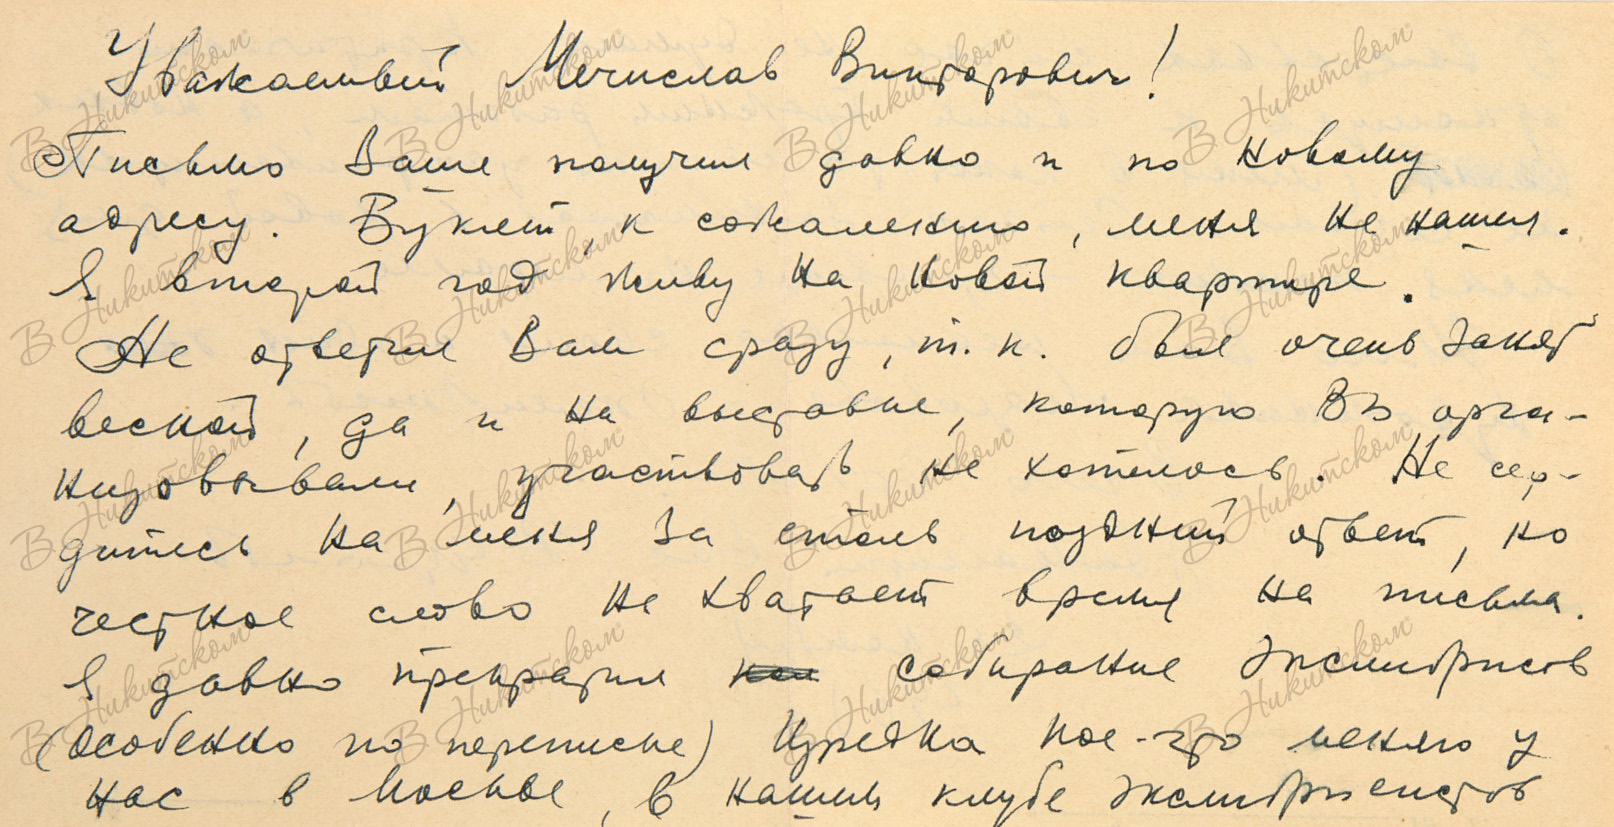 Уважаемый Мечислав Викторович!
Письмо Ваше получил давно и по новому
адресу. Буклет, к сожалению, меня не нашел.
Я второй год живу на новой квартире.
Не ответил Вам сразу, т.к. был очень занят
весной, да и на выставке, которую Вы орга-
низовывали, участвовать не хотелось. Не сер-
дитесь на меня за столь поздний ответ, но
честное слово не хватает время на письма.
Я давно прекратил собирание экслибрисов
(особенно по переписке) Изредка кое-что меняю у
нас в Москве, в нашем клубе экслибрисистов
В Никитском